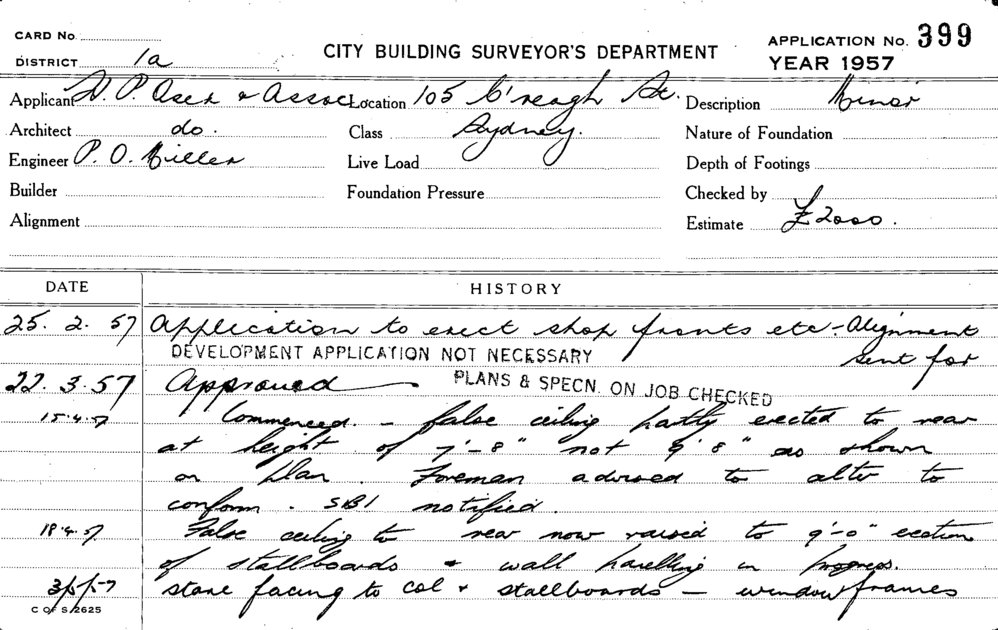 CARD No.
DISTRICT 1a
CITY BUILDING SURVEYOR'S DEPARTMENT
APPLICATION No. 399
YEAR 1957
Applicant P. & Assoc Location 105 C'reagh St. Description Minor
Architect do. Class Sydney. Nature of Foundation
Engineer P. O. Miller Live Load Depth of Footings
Builder Foundation Pressure Checked by
Alignment Estimate £2000.
DATE HISTORY
25. 2. 57 Application to erect shop fronts etc - Alignment
sent for
DEVELOPMENT APPLICATION NOT NECESSARY
22. 3. 57 Approved
PLANS & SPECN. ON JOB CHECKED
15.4.57 Commenced. - false ceiling partly erected to rear
at height of 7'-8" not 9'8" as shown
on plan. Foreman advised to alter to
conform. SBI notified.
18.4.57 False ceiling to rear now raised to 9'-0" erection
of stallboards & wall panelling in progress.
3/5/57 stone facing to col & stallboards - window frames
C OF S 2625